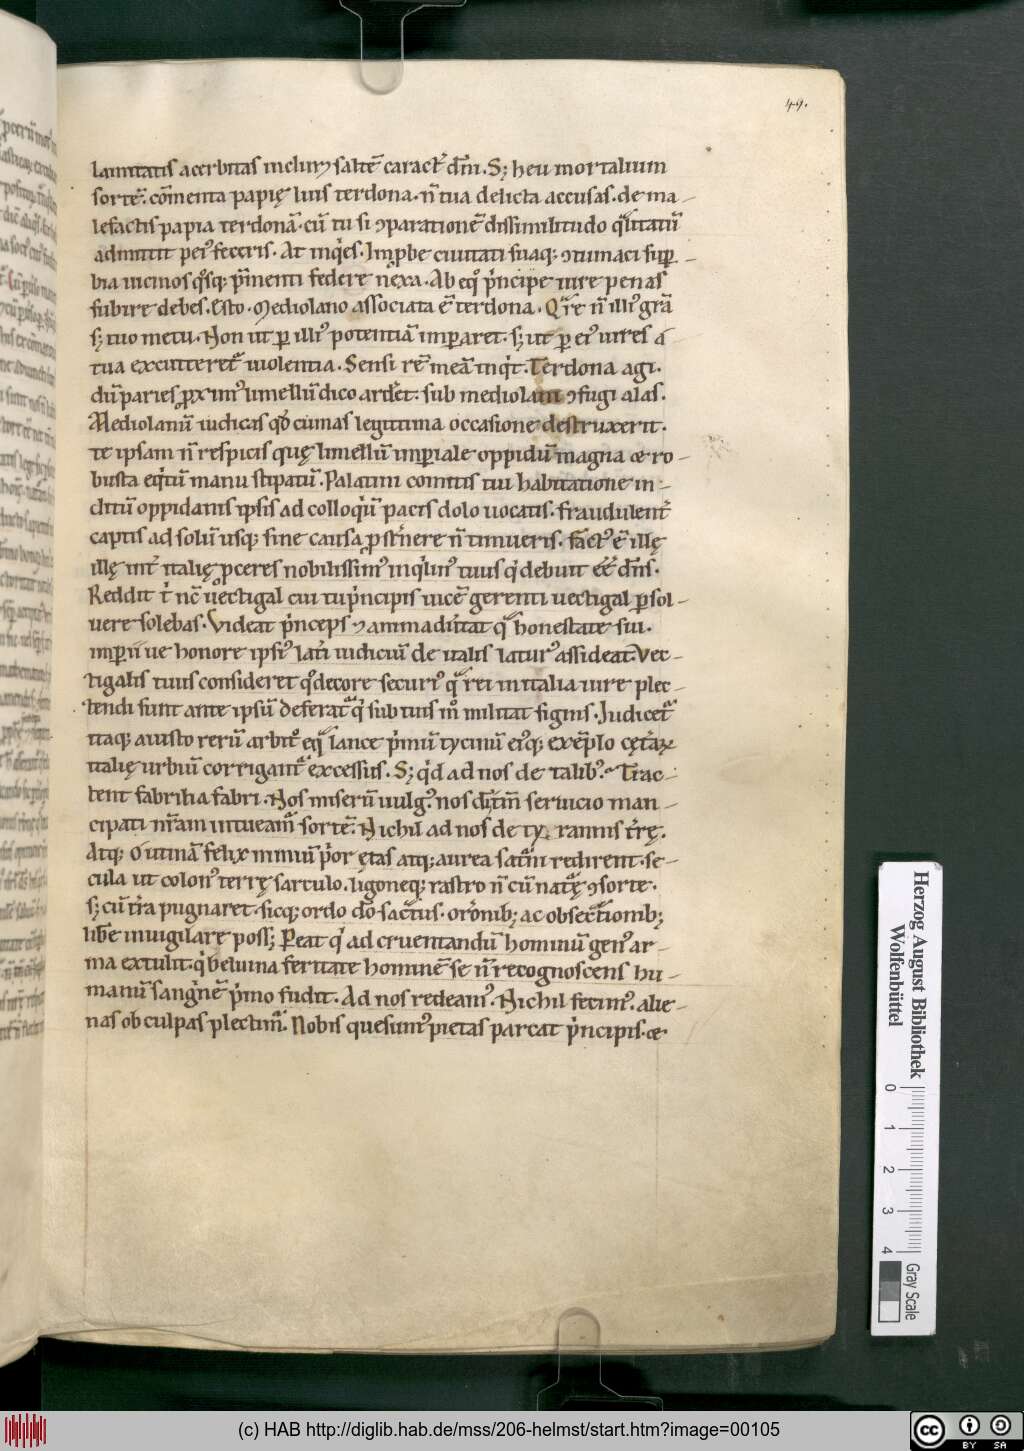 49.
lamitatis acerbitas meliorꝫ saltē caract᷒ dn̄m. Sꝫ heu mortalium
sortē. cōmenta papię luis terdona. n̄ tua delicta accusas. de ma-
lefactis papia terdonā. cū tu si ꝯparationē dissimilitudo qͣlitatū
admittit peiꝰ feceris. At inqͥes. Imꝓbe ciuitati suaqꝫ ꝯtumaci suꝑ-
bia uicinos qͦsqꝫ p̄menti federe nexa. Ab eqͦ pͥncipe iure penas
subire debes. Esto. Mediolano associata ē terdona. Qͣre n̄ illiꝰ grā
sꝫ tuo metu. Non ut ꝑ illiꝰ potentiā imꝑaret. sꝫ ut ꝑ eiꝰ uires a
tua excuteret᷑ uiolentia. Sensi rē meā inqͥt. Terdona agi.
dū paries ꝓximꝰ umellū dico ardet. sub mediolani ꝯfugi alas.
Mediolanū iudicas qd̄ cumas legitima occasione destruxerit.
te ipsam n̄ respicis quę limellū imꝑiale oppidū magna & ro-
busta eqͥtū manu stipatū. Palatini comitis tui habitatione in-
clitū oppidanis ipsis ad colloqͥū pacis dolo uocatis. fraudulent᷒
captis ad solū usqꝫ sine causa ꝓst᷒nere n̄ timueris. Factꝰ ē illę
illę int᷒ italię ꝓceres nobilissimꝰ inqͥlinꝰ tuus qͥ debuit ēē dn̄s.
Reddit t̄ nc̄ uectigal cui tu pͥncipis uicē gerenti uectigal ꝑsol-
uere solebas. Videat pͥnceps ꝯ animaduertat qͣ honestate sui.
imꝑii ue honore ipsiꝰ lat᷒i iudiciū de italis laturꝰ assideat. Vec-
tigalis tuus consideret qͦ decore securiꝰ qͣ rei in italia iure plec-
tendi sunt ante ipsū deferat᷑ qͥ sub tuis mͦ militat signis. Iudicet᷑
itaqꝫ a iusto rerū arbit᷒o eqͣ lance pͥmū tycinū eiꝰqꝫ exēplo cęt᷒aꝝ
italię urbiū corrigant᷑ excessus. Sꝫ qͥd ad nos de talibꝰ. Trac-
tent fabrilia fabri. Nos miserū uulgꝰ. nos diutinā seruicio man-
cipati nr̄am intueamur sortē. Nichil ad nos de tyrannis t᷒rę.
Atqꝫ o utinā felix nimiū pͥor ętas atqꝫ aurea saturni redirent. se-
cula ut colonꝰ terrę sarculo. ligoneqꝫ rastro n̄ cū natᷓę ꝯsorte.
sꝫ cū t᷒ra pugnaret. sicqꝫ ordo dō sac̄tus. orōnibꝫ ac obsec᷒tionibꝫ
libe inuigilare possꝫ. Ꝑeat qͥ ad cruentandū hominū genꝰ ar-
ma extulit. qͥ beluina feritate hominē se n̄ recognoscens hu-
manū sangͥnē pͥmo fudit. Ad nos redeamꝰ. Nichil fecimꝰ. alie-
nas ob culpas plectimur. Nobis quesumꝰ pietas parcat pͥncipis. &
Herzog August Bibliothek
Wolfenbüttel
0 1 2 3 4
Gray Scale
(c) HAB http://diglib.hab.de/mss/206-helmst/start.htm?image=00105
cc BY SA